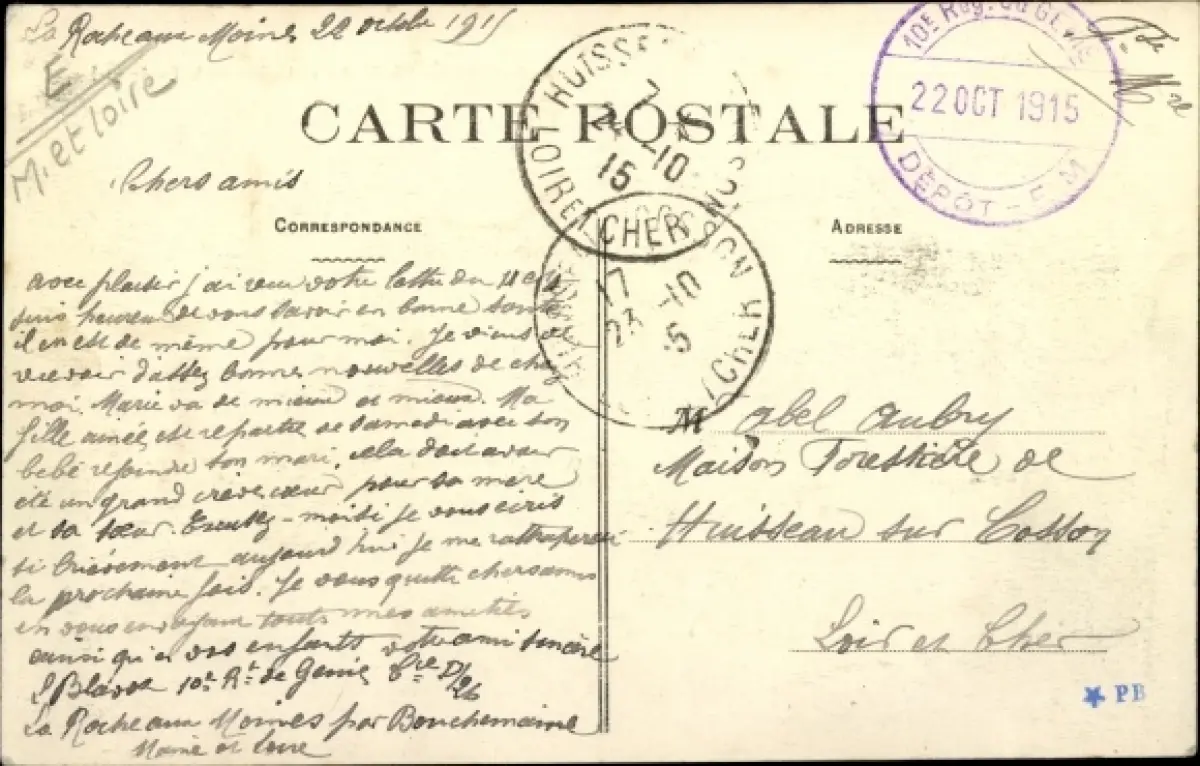 La Roche aux Moines 22 octobre 1915
E
M. et Loire
CARTE POSTALE
10e Rég. du Génie
22 OCT 1915
DÉPÔT - F. M
HUISSEAU
LOIR ET CHER
7
10
15
Chers amis
CORRESPONDANCE
ADRESSE
17
-10
LOIR ET CHER
avec plaisir j'ai reçu votre lettre du
suis heureux de vous savoir en bonne santé
il en est de même pour moi. Je viens de
recevoir d'assez bonnes nouvelles de chez
moi, Marie va de mieux et mieux. Ma
fille aînée est repartie samedi avec son
bébé rejoindre son mari, cela doit avoir
été un grand crève cœur pour sa mère
et sa sœur. Excusez-moi si je vous écris
si brièvement aujourd'hui je me rattraperai
la prochaine fois. Je vous quitte chers amis
en vous envoyant toutes mes amitiés
ainsi qu'à vos enfants votre ami sincère
10e Rt de Génie Cie D/26
La Roche aux Moines par Bouchemaine
Maine et Loire
M Abel Aubry
Maison Forestière de
Huisseau sur Cosson
Loir et Cher
PB